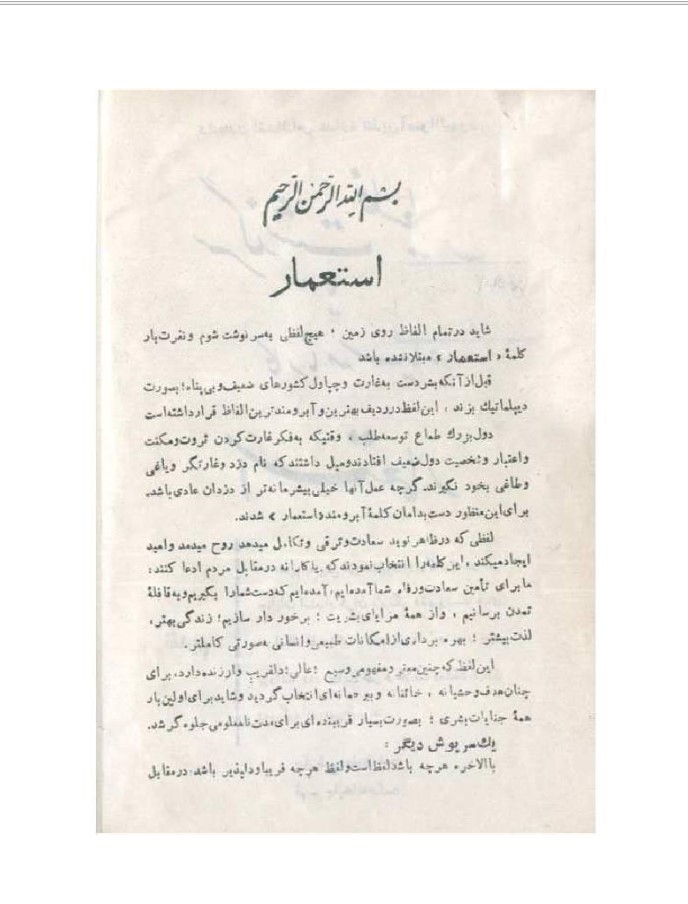 بسم الله الرحمن الرحیم
استعمار
شاید در تمام الفاظ روی زمین ، هیچ لفظی به سرنوشت شوم و نفرت بار
کلمهٔ « استعمار » مبتلا نشده باشد
قبل از آنکه بشر دست به غارت و چپاول کشورهای ضعیف و بی پناه ؛ بصورت
دیپلماتیك بزند ، این لفظ در ردیف بهترین و آبرومندترین الفاظ قرار داشته است
دول بزرك طماع توسعه طلب ، وقتیکه به فکر غارت کردن ثروت و مکنت
و اعتبار و شخصیت دول ضعیف افتادند و میل داشتند که نام دزد و غارتگر و یاغی
و طاغی بخود نگیرند. گرچه عمل آنها خیلی بیشرمانه تر از دزدان عادی باشد.
برای این منظور دست بدامان کلمهٔ آبرومند « استعمار » شدند.
لفظی که در ظاهر نوید سعادت و ترقی و تکامل میدهد روح میدمد و امید
ایجاد میکند « این کلمه را انتخاب نمودند که ریاکارانه در مقابل مردم ادعا کنند :
ما برای تأمین سعادت و رفاه شما آمده ایم ، آمده ایم که دست شما را بگیریم و به قافلهٔ
تمدن برسانیم ، و از همهٔ مزایای بشریت ؛ برخوردار سازیم ؛ زندگی بهتر ،
لذت بیشتر ؛ بهره برداری از امکانات طبیعی و انسانی بصورتی کاملتر.
این لفظ که چنین معنی و مفهومی وسیع ؛ عالی ؛ دلفریب و ارزنده دارد ، برای
چنان هدف وحشیانه ، خائنانه و بیرحمانه ای انتخاب گردید و شاید برای اولین بار
همهٔ جنایات بشری ؛ بصورت بسیار فریبنده ای برای مدت نامعلومی جلوه گر شد.
یك سرپوش دیگر :
بالاخره هرچه باشد لفظ است و لفظ هرچه فریبا و دلپذیر باشد ؛ در مقابل